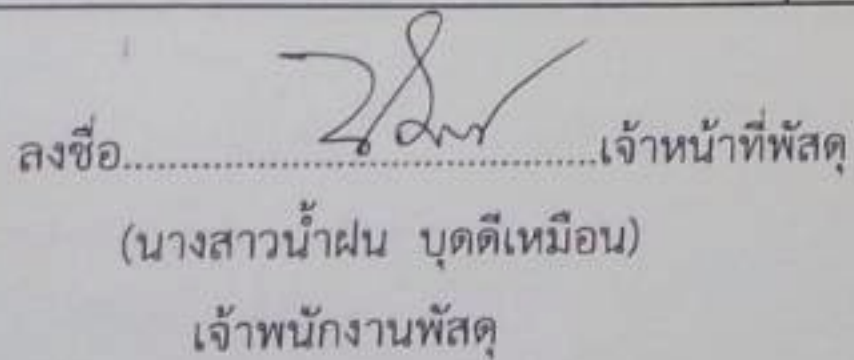 ลงชื่อ..........................................................เจ้าหน้าที่พัสดุ
(นางสาวน้ำฝน บุดดีเหมือน)
เจ้าพนักงานพัสดุ